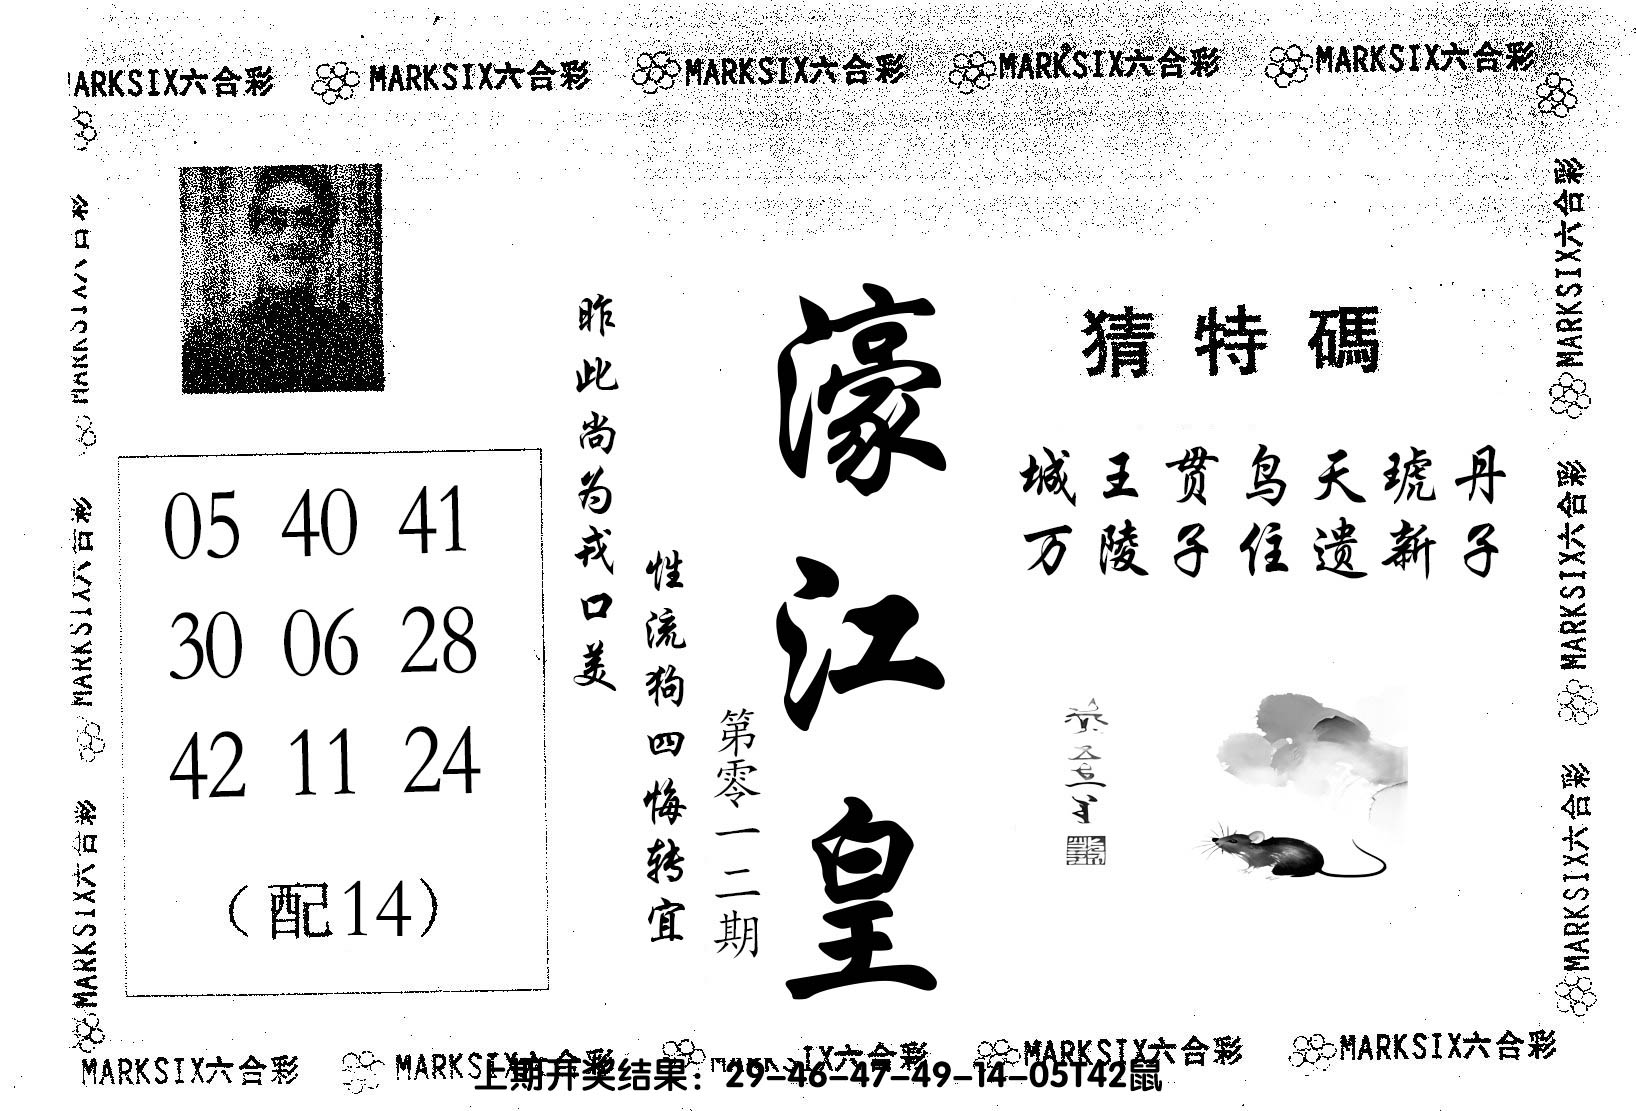 MARKSIX六合彩 MARKSIX六合彩 MARKSIX六合彩 MARKSIX六合彩 MARKSIX六合彩
猜特碼
城王贯鸟天琥丹
万陵子住遗新子
濠江皇
第零一二期
昨此尚为戎口美
性流狗四悔转宜
05 40 41
30 06 28
42 11 24
（配14）
MARKSIX六合彩
MARKSIX六合彩
MARKSIX六合彩
MARKSIX六合彩
MARKSIX六合彩
MARKSIX六合彩
MARKSIX六合彩 MARKSIX六合彩 MARKSIX六合彩 MARKSIX六合彩 MARKSIX六合彩
上期开奖结果：29-46-47-49-14-05T42鼠